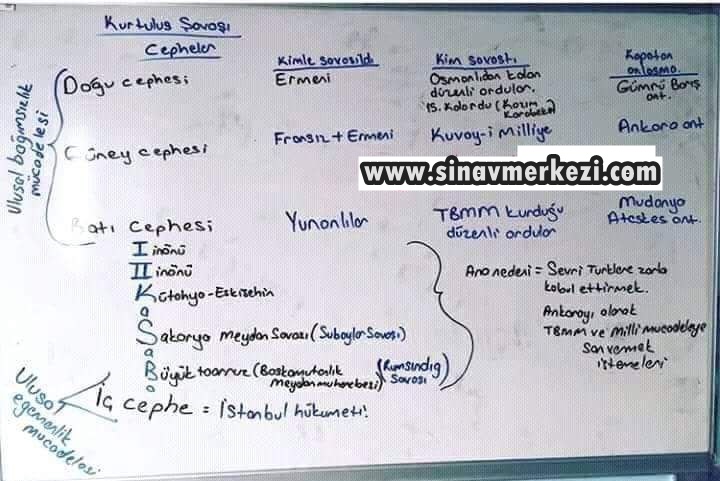 Kurtuluş Savaşı
Cepheler
Kimle savaşıldı
Kim savaştı
Kapatan anlaşma
Ulusal bağımsızlık mücadelesi
Doğu cephesi
Ermeni
Osmanlıdan kalan
düzenli ordular.
15. Kolordu (Kazım
Karabekir)
Gümrü Barış
ant.
Güney cephesi
Fransız + Ermeni
Kuvay-i Milliye
Ankara ant
www.sinavmerkezi.com
Batı Cephesi
Yunanlılar
TBMM kurduğu
düzenli ordular
Mudanya
Ateşkes ant.
I inönü
II inönü
Kütahya-Eskişehir
a
Sakarya meydan Savaşı (Subaylar Savaşı)
a
Büyük taarruz (Başkomutanlık
meydan muharebesi)
(Rumsındığı
Savaşı)
a
Ana nedeni = Sevri Türklere zorla
kabul ettirmek.
Ankarayı alarak
TBMM ve Milli mücadeleye
Son vermek
istemeleri
Ulusal egemenlik mücadelesi
İç cephe = İstanbul hükümeti!